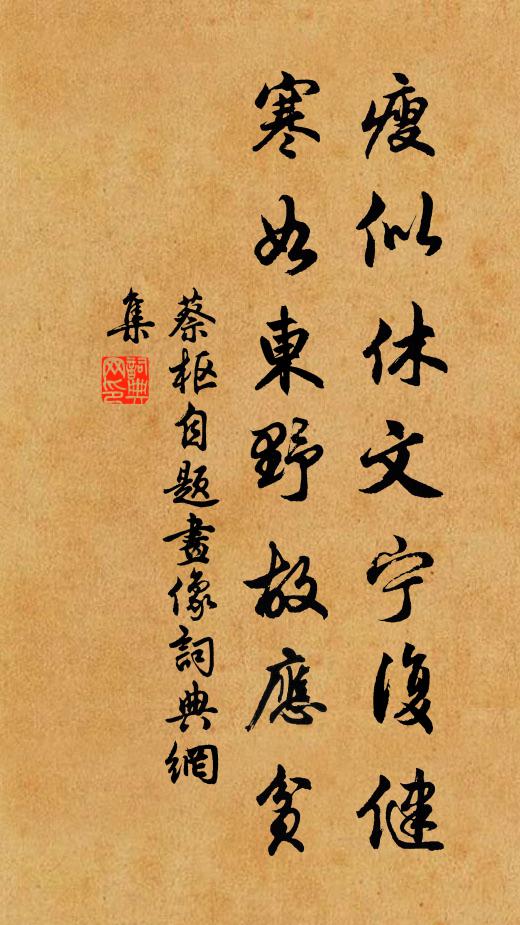 瘦似休文宁復健
寒如東野故應貧
蔡枢自题畫像詞典網
集
詞典网印